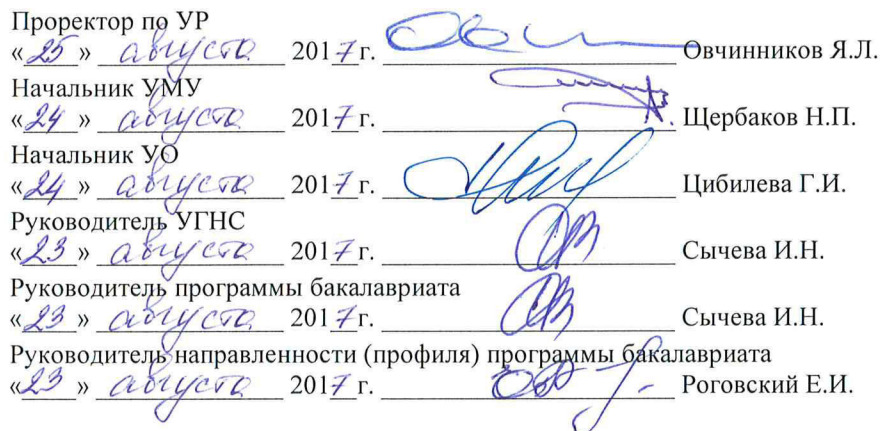 Проректор по УР
«25» августа 2017 г. Овчинников Я.Л.
Начальник УМУ
«24» августа 2017 г. Щербаков Н.П.
Начальник УО
«24» августа 2017 г. Цибилева Г.И.
Руководитель УГНС
«23» августа 2017 г. Сычева И.Н.
Руководитель программы бакалавриата
«23» августа 2017 г. Сычева И.Н.
Руководитель направленности (профиля) программы бакалавриата
«23» августа 2017 г. Роговский Е.И.